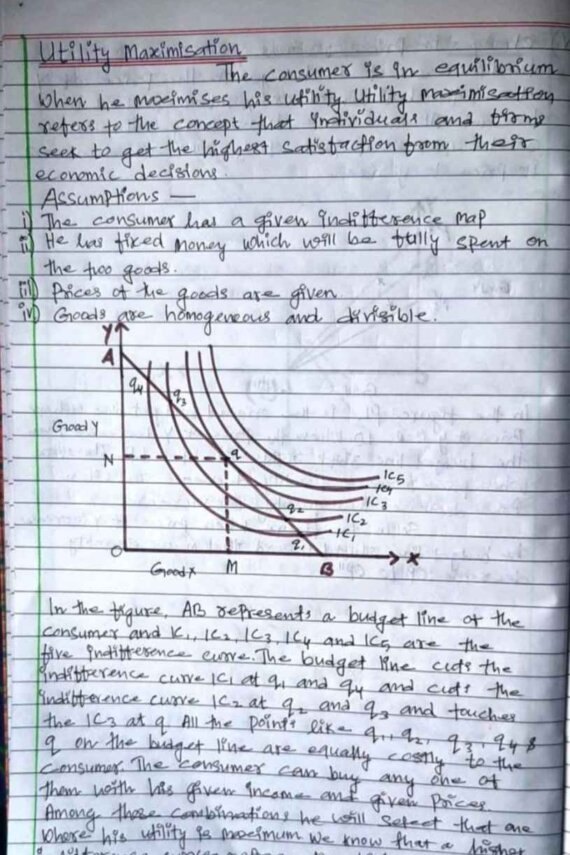 Utility Maximisation
The consumer is in equilibrium
when he maximises his utility Utility maximisation
refers to the concept that individuals and firms
seek to get the highest satisfaction from their
economic decisions.
Assumptions —
i) The consumer has a given indifference map
ii) He has fixed money which will be fully spent on
the two goods.
iii) Prices of the goods are given.
iv) Goods are homogeneous and divisible.
Y
A
q4
q3
Good Y
N
q
IC5
IC4
IC3
q2
IC2
IC1
q1
O
Good X
M
B
X
In the figure, AB represents a budget line of the
consumer and IC1, IC2, IC3, IC4 and IC5 are the
five indifference curve. The budget line cuts the
indifference curve IC1 at q1 and q4 and cuts the
indifference curve IC2 at q2 and q3 and touches
the IC3 at q All the points like q1, q2, q3, q4 &
q on the budget line are equally costly to the
consumer. The consumer can buy any one of
them with his given income and given prices
Among these combinations he will select that one
where his utility is maximum we know that a higher